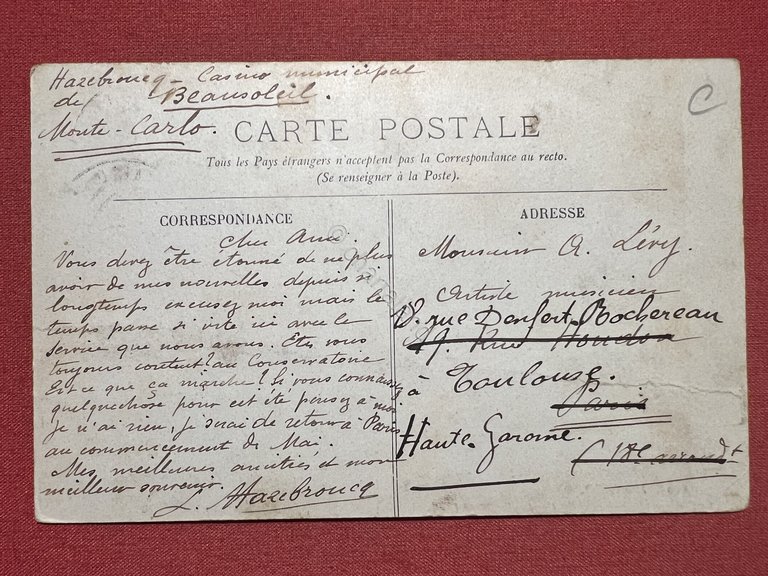 Hazebroucq - Casino municipal
de Beausoleil.
Monte-Carlo.
C
CARTE POSTALE
Tous les Pays étrangers n'acceptent pas la Correspondance au recto.
(Se renseigner à la Poste).
CORRESPONDANCE
Cher Ami.
Vous devez être étonné de ne plus
avoir de mes nouvelles depuis si
longtemps excusez moi mais le
temps passe si vite ici avec le
service que nous avons. Etes vous
toujours content? au Conservatoire
Est ce que ça marche? Si vous connaissez
quelquechose pour cet été pensez à moi
je n'ai rien, je serai de retour à Paris
au commencement de Mai.
Mes meilleures amitiés et mon
meilleur souvenir.
L. Hazebroucq
ADRESSE
Monsieur A. Lévy.
Artiste musicien
18. rue Denfert-Rochereau
Rue Houdon
à Toulouse.
Paris
Haute-Garonne.